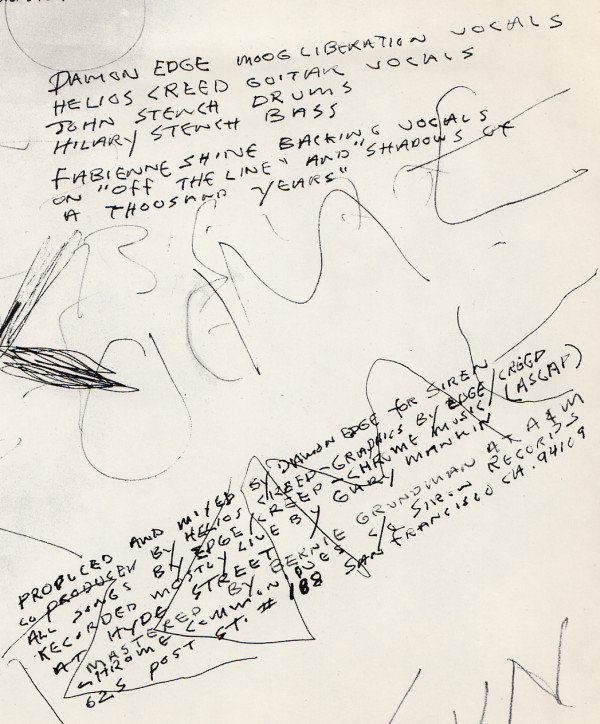 DAMON EDGE MOOG LIBERATION VOCALS
HELIOS CREED GUITAR VOCALS
JOHN STENCH DRUMS
HILARY STENCH BASS
FABIENNE SHINE BACKING VOCALS
ON "OFF THE LINE" AND "SHADOWS OF
A THOUSAND YEARS"
PRODUCED AND MIXED BY DAMON EDGE FOR SIREN
CO PRODUCED BY HELIOS CREED-GRAPHICS BY EDGE/CREED
ALL SONGS BY EDGE/CREED-CHROME MUSIC (ASCAP)
RECORDED MOSTLY LIVE BY GARY MANKIN
AT HYDE STREET
MASTERED BY BERNIE GRUNDMAN AT A&M
CHROME COMMUNIQUES C/O SIREN RECORDS
625 POST ST. # 188 SAN FRANCISCO CA. 94109